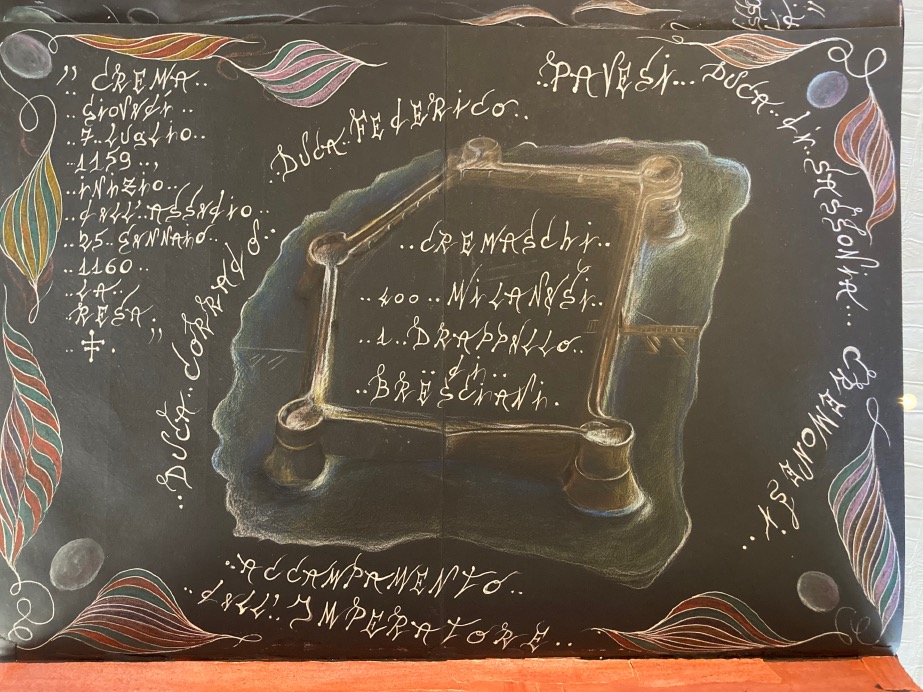 " CREMA..
giovedi..
..7 luglio..
..1159..,
..inizio..
..dell'assedio..
..25 gennaio..
..1160..
..LA..
RESA. "
..DUCA FEDERICO..
..PAVESI... DUCA di SASSONIA...
CREMONESI..
..DUCA CORRADO..
..CREMASCHI..
..400.. MILANESI..
..1.. DRAPPELLO..
..di..
..BRESCIANI..
..ACCAMPAMENTO..
..dell'.. IMPERATORE..